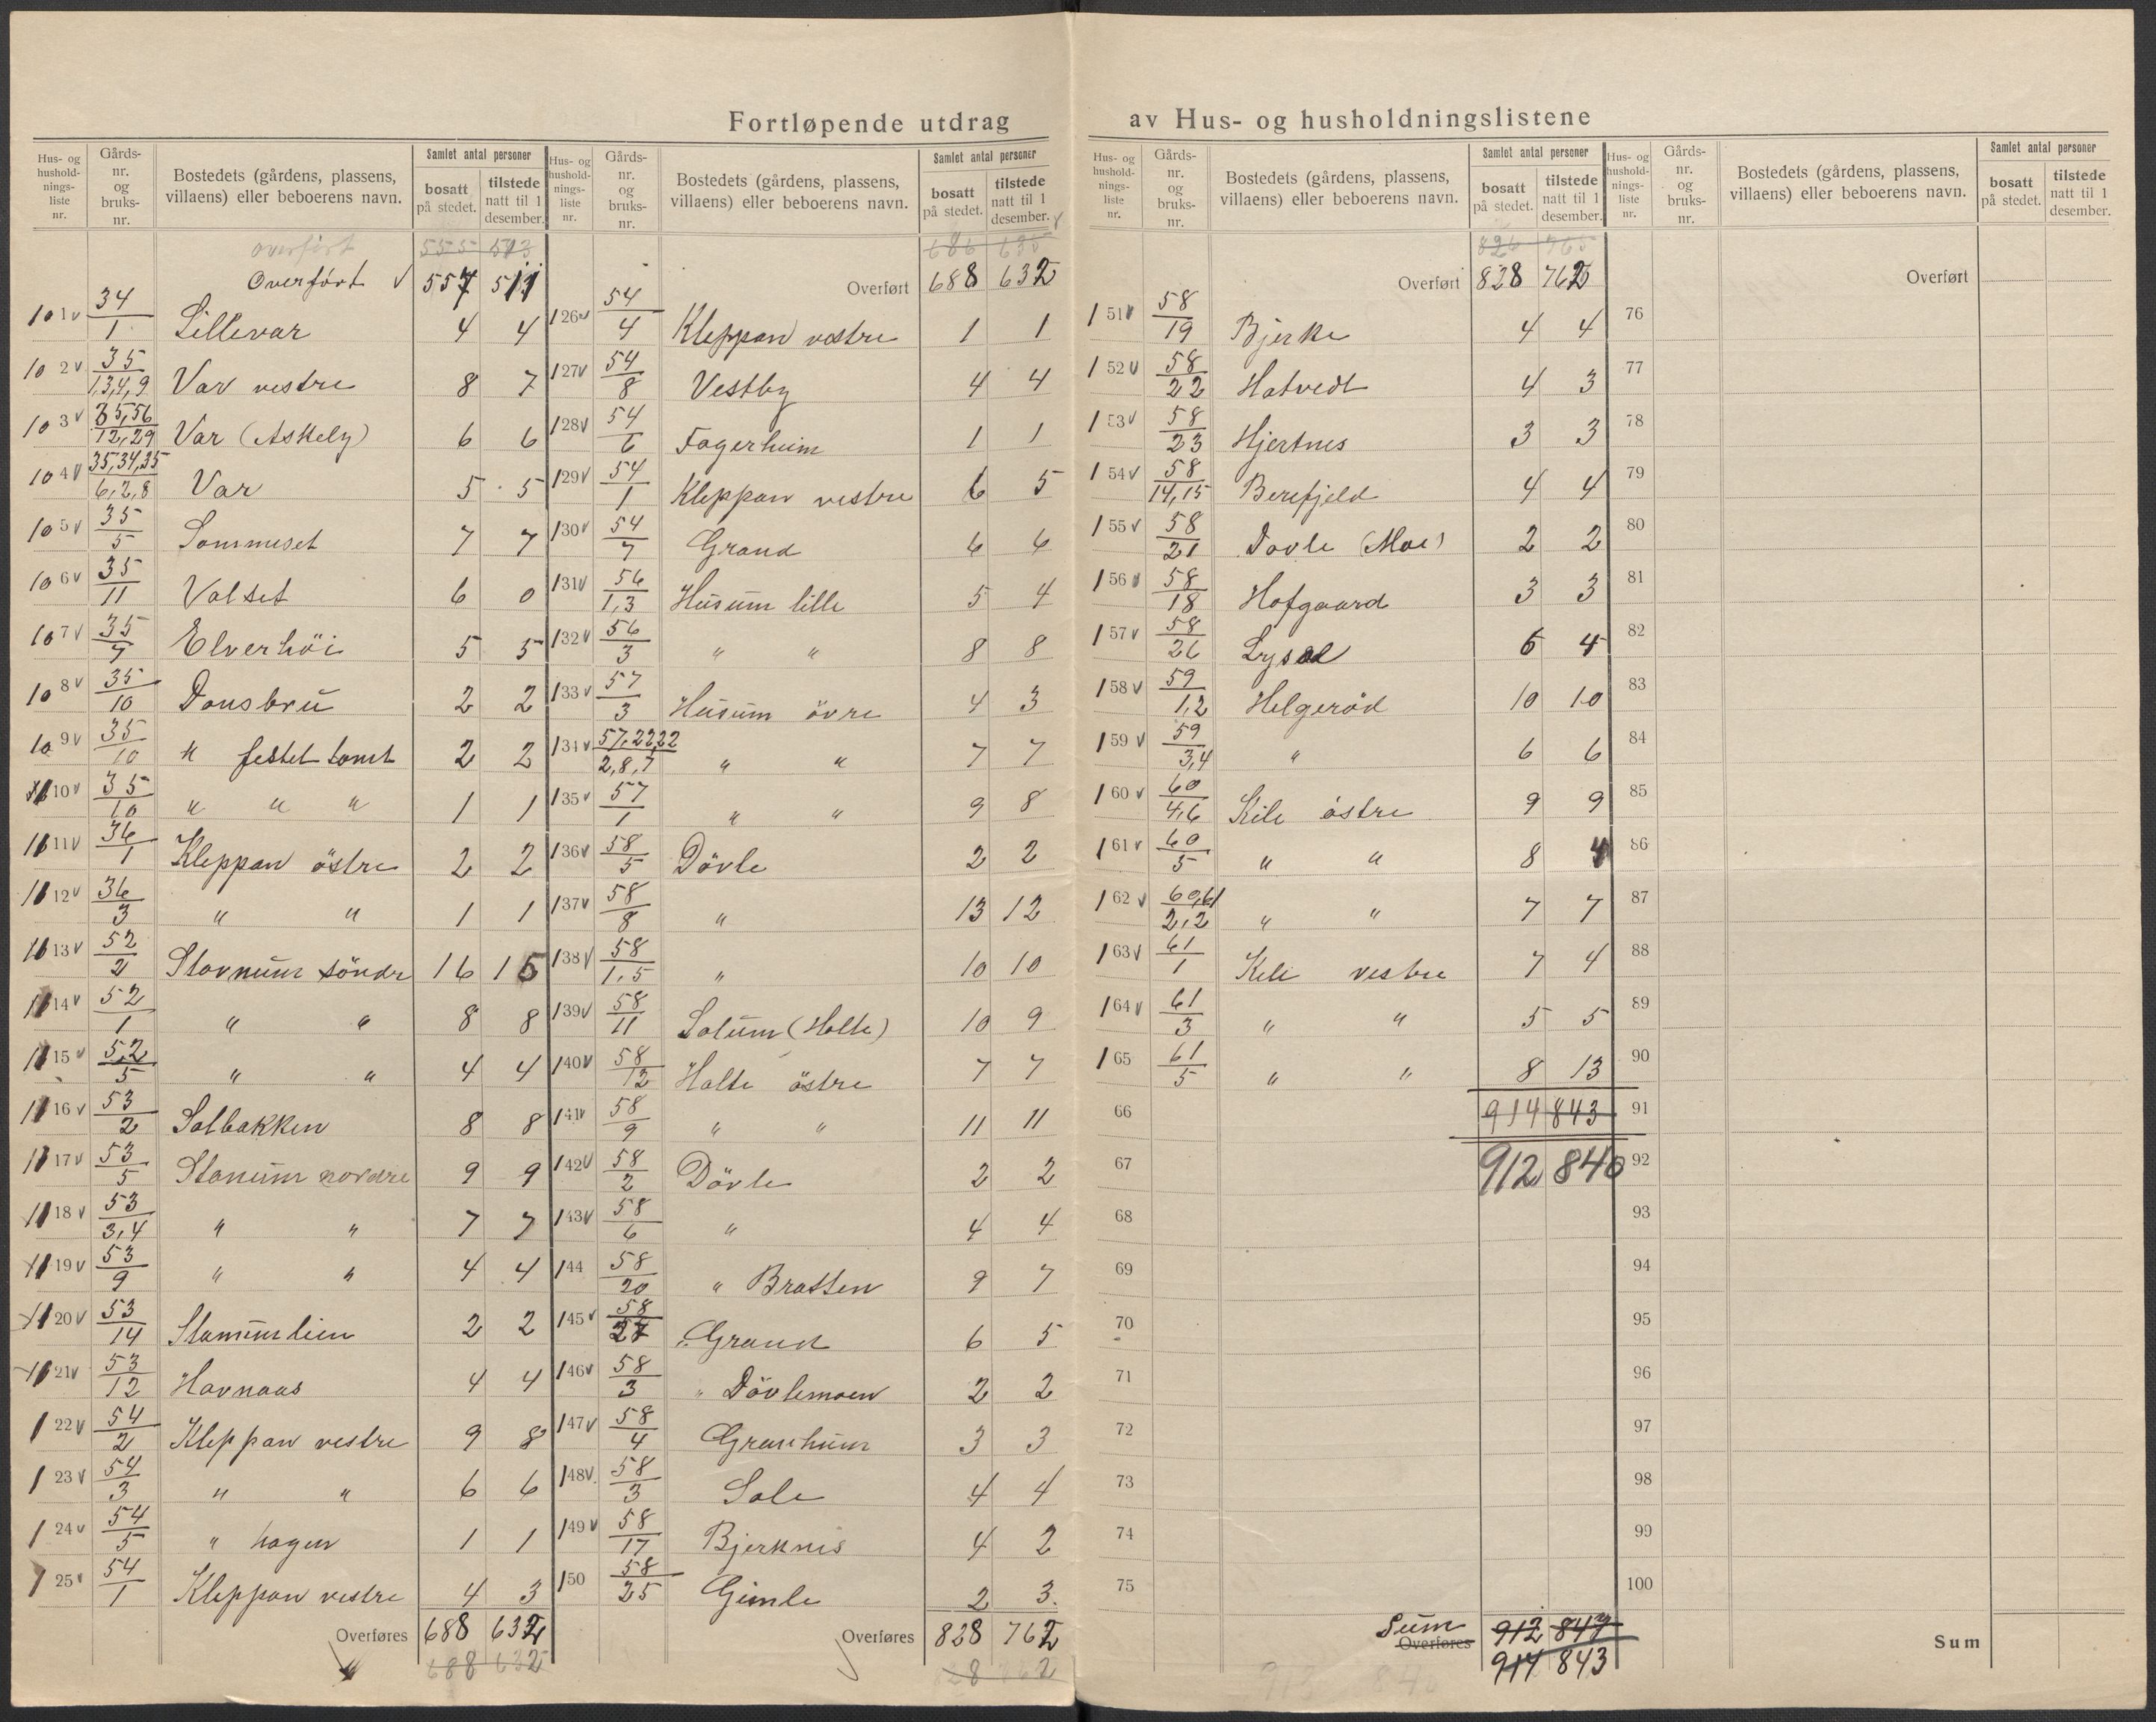 Fortløpende utdrag av Hus- og husholdningslistene
Hus- og hushold-nings-liste nr. | Gårds-nr. og bruks-nr. | Bostedets (gårdens, plassens, villaens) eller beboerens navn. | Samlet antal personer | bosatt på stedet. | tilstede natt til 1 desember.
overført 555 513
Overført 557 511
101 34/1 Lillevar 4 4
102 35/1,3,4,9 Var vestre 8 7
103 35,56/12,29 Var (Askely) 6 6
104 35,34,35/6,2,8 Var 5 5
105 35/5 Sommeset 7 7
106 35/11 Valset 6 0
107 35/7 Elverhöi 5 5
108 35/10 Dousbru 2 2
109 35/10 " festet tomt 2 2
110 35/10 " " " 1 1
111 36/1 Kleppan östre 2 2
112 36/3 " " 1 1
113 52/2 Stavnum söndr 16 15
114 52/1 " " 8 8
115 52/5 " " 4 4
116 53/2 Solbakken 8 8
117 53/5 Stanum nordre 9 9
118 53/3,4 " " 7 7
119 53/9 " " 4 4
120 53/14 Stanumlien 2 2
121 53/12 Havnaas 4 4
122 54/2 Kleppan vestre 9 8
123 54/3 " " 6 6
124 54/5 " hagen 1 1
125 54/1 Kleppan vestre 4 3
Overføres 688 632
688 632
Hus- og hushold-nings-liste nr. | Gårds-nr. og bruks-nr. | Bostedets (gårdens, plassens, villaens) eller beboerens navn. | Samlet antal personer | bosatt på stedet. | tilstede natt til 1 desember.
686 635
Overført 688 632
126 54/4 Kleppan vestre 1 1
127 54/8 Vestby 4 4
128 54/6 Fagerheim 1 1
129 54/1 Kleppan vestre 6 5
130 54/7 Grand 6 6
131 56/1,3 Husum lille 5 4
132 56/3 " " 8 8
133 57/3 Husum övre 4 3
134 57,22,22/2,8,7 " " 7 7
135 57/1 " " 9 8
136 58/5 Dövle 2 2
137 58/8 " 13 12
138 58/1,5 " 10 10
139 58/11 Solum (Holte) 10 9
140 58/12 Holte östre 7 7
141 58/9 " " 11 11
142 58/2 Dövle 2 2
143 58/6 " 4 4
144 58/20 " Bratten 9 7
145 58/27 Grand 6 5
146 58/3 " Dövlemoen 2 2
147 58/4 3 3
148 58/3 Sole 4 4
149 58/17 Bjerknes 4 2
150 58/25 Gimle 2 3
Overføres 828 762
Hus- og hushold-nings-liste nr. | Gårds-nr. og bruks-nr. | Bostedets (gårdens, plassens, villaens) eller beboerens navn. | Samlet antal personer | bosatt på stedet. | tilstede natt til 1 desember.
826 765
Overført 828 762
151 58/19 Bjerke 4 4
152 58/22 Hatvedt 4 3
153 58/23 Hjertnes 3 3
154 58/14,15 Berefjeld 4 4
155 58/21 Dovle (Moe) 2 2
156 58/18 Hofgaard 3 3
157 58/26 6 4
158 59/1,2 Helgeröd 10 10
159 59/3,4 " 6 6
160 60/4,6 Kile östre 9 9
161 60/5 " " 8 4
162 60,61/2,2 " " 7 7
163 61/1 Kile vestre 7 4
164 61/3 " " 5 5
165 61/5 " " 8 13
66 914 843
67 912 840
68
69
70
71
72
73
74
75
Sum Overføres 912 847
914 843
Hus- og hushold-nings-liste nr. | Gårds-nr. og bruks-nr. | Bostedets (gårdens, plassens, villaens) eller beboerens navn. | Samlet antal personer | bosatt på stedet. | tilstede natt til 1 desember.
Overført
76
77
78
79
80
81
82
83
84
85
86
87
88
89
90
91
92
93
94
95
96
97
98
99
100
Sum